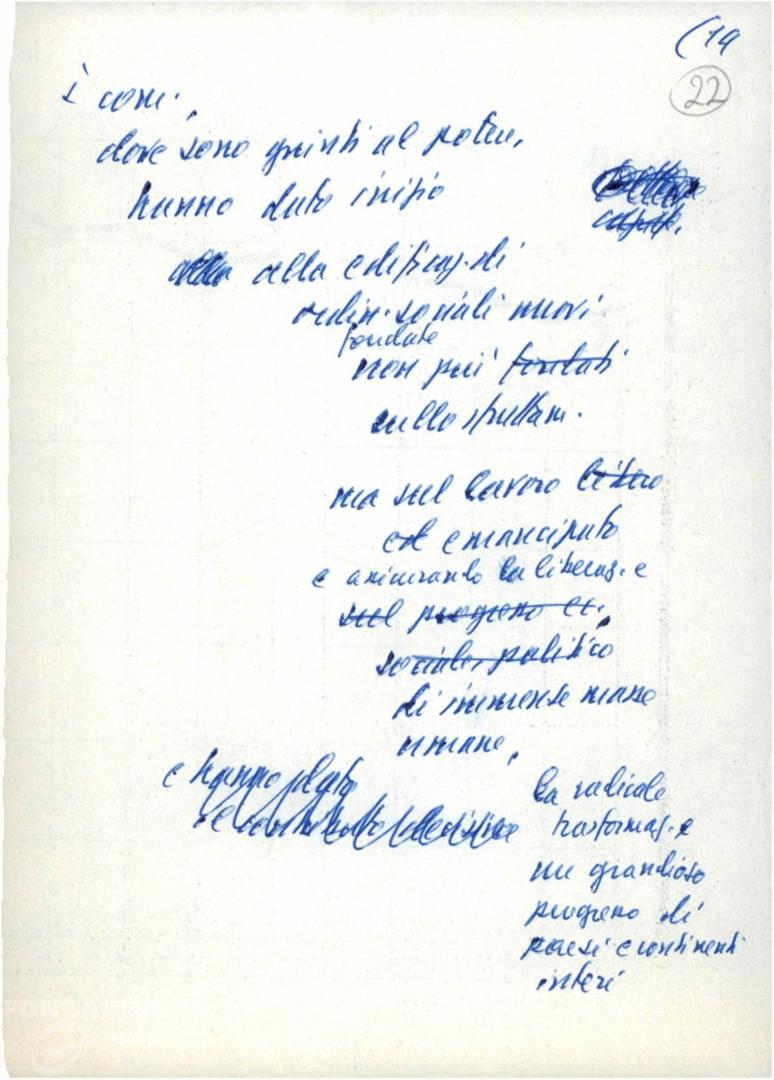 (14
22
i com.,
dove sono giunti al potere,
hanno dato inizio
alla alla edificaz. di
ordin. sociali nuovi
fondate
non più fondati
sullo sfruttam.
ma sul lavoro libero
ed emancipato
e assicurando la liberaz.e
sul progresso ec.,
sociale, politico
di immense masse
umane,
e hanno dato
il contributo decisivo
la radicale
trasformaz.e
un grandioso
progresso di
paesi e continenti
interi